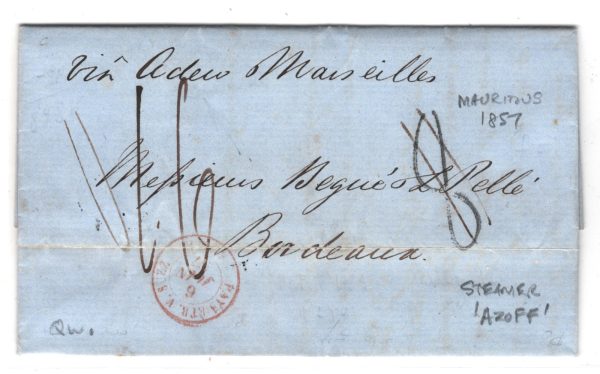 viâ Aden & Marseilles
MAURITIUS
1857
Messieurs Begué & Pellé
Bordeaux.
STEAMER
'AZOFF'
QW.